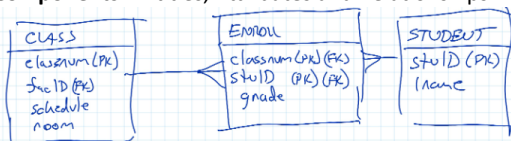 CLASS
classnum (PK)
facID (FK)
schedule
room
ENROLL
classnum (PK) (FK)
stuID (PK) (FK)
grade
STUDENT
stuID (PK)
lname